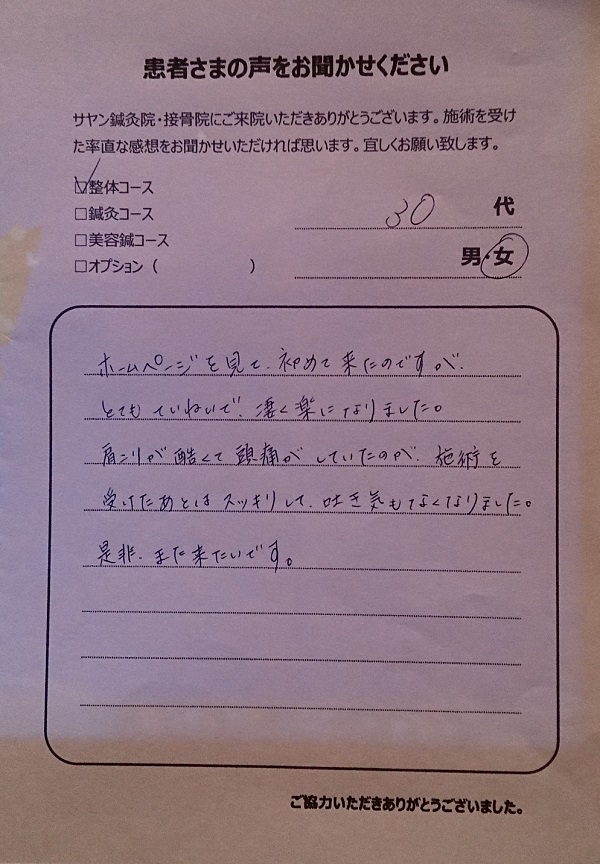 患者さまの声をお聞かせください
サヤン鍼灸院・接骨院にご来院いただきありがとうございます。施術を受け
た率直な感想をお聞かせいただければ思います。宜しくお願い致します。
☑整体コース
□鍼灸コース
□美容鍼コース
□オプション（　　　　　）
30 代
男・女
ホームページを見て、初めて来たのですが、
とてもていねいで、凄く楽になりました。
肩こりが酷くて頭痛がしていたのが、施術を
受けたあとはスッキリして、吐き気もなくなりました。
是非、また来たいです。
ご協力いただきありがとうございました。